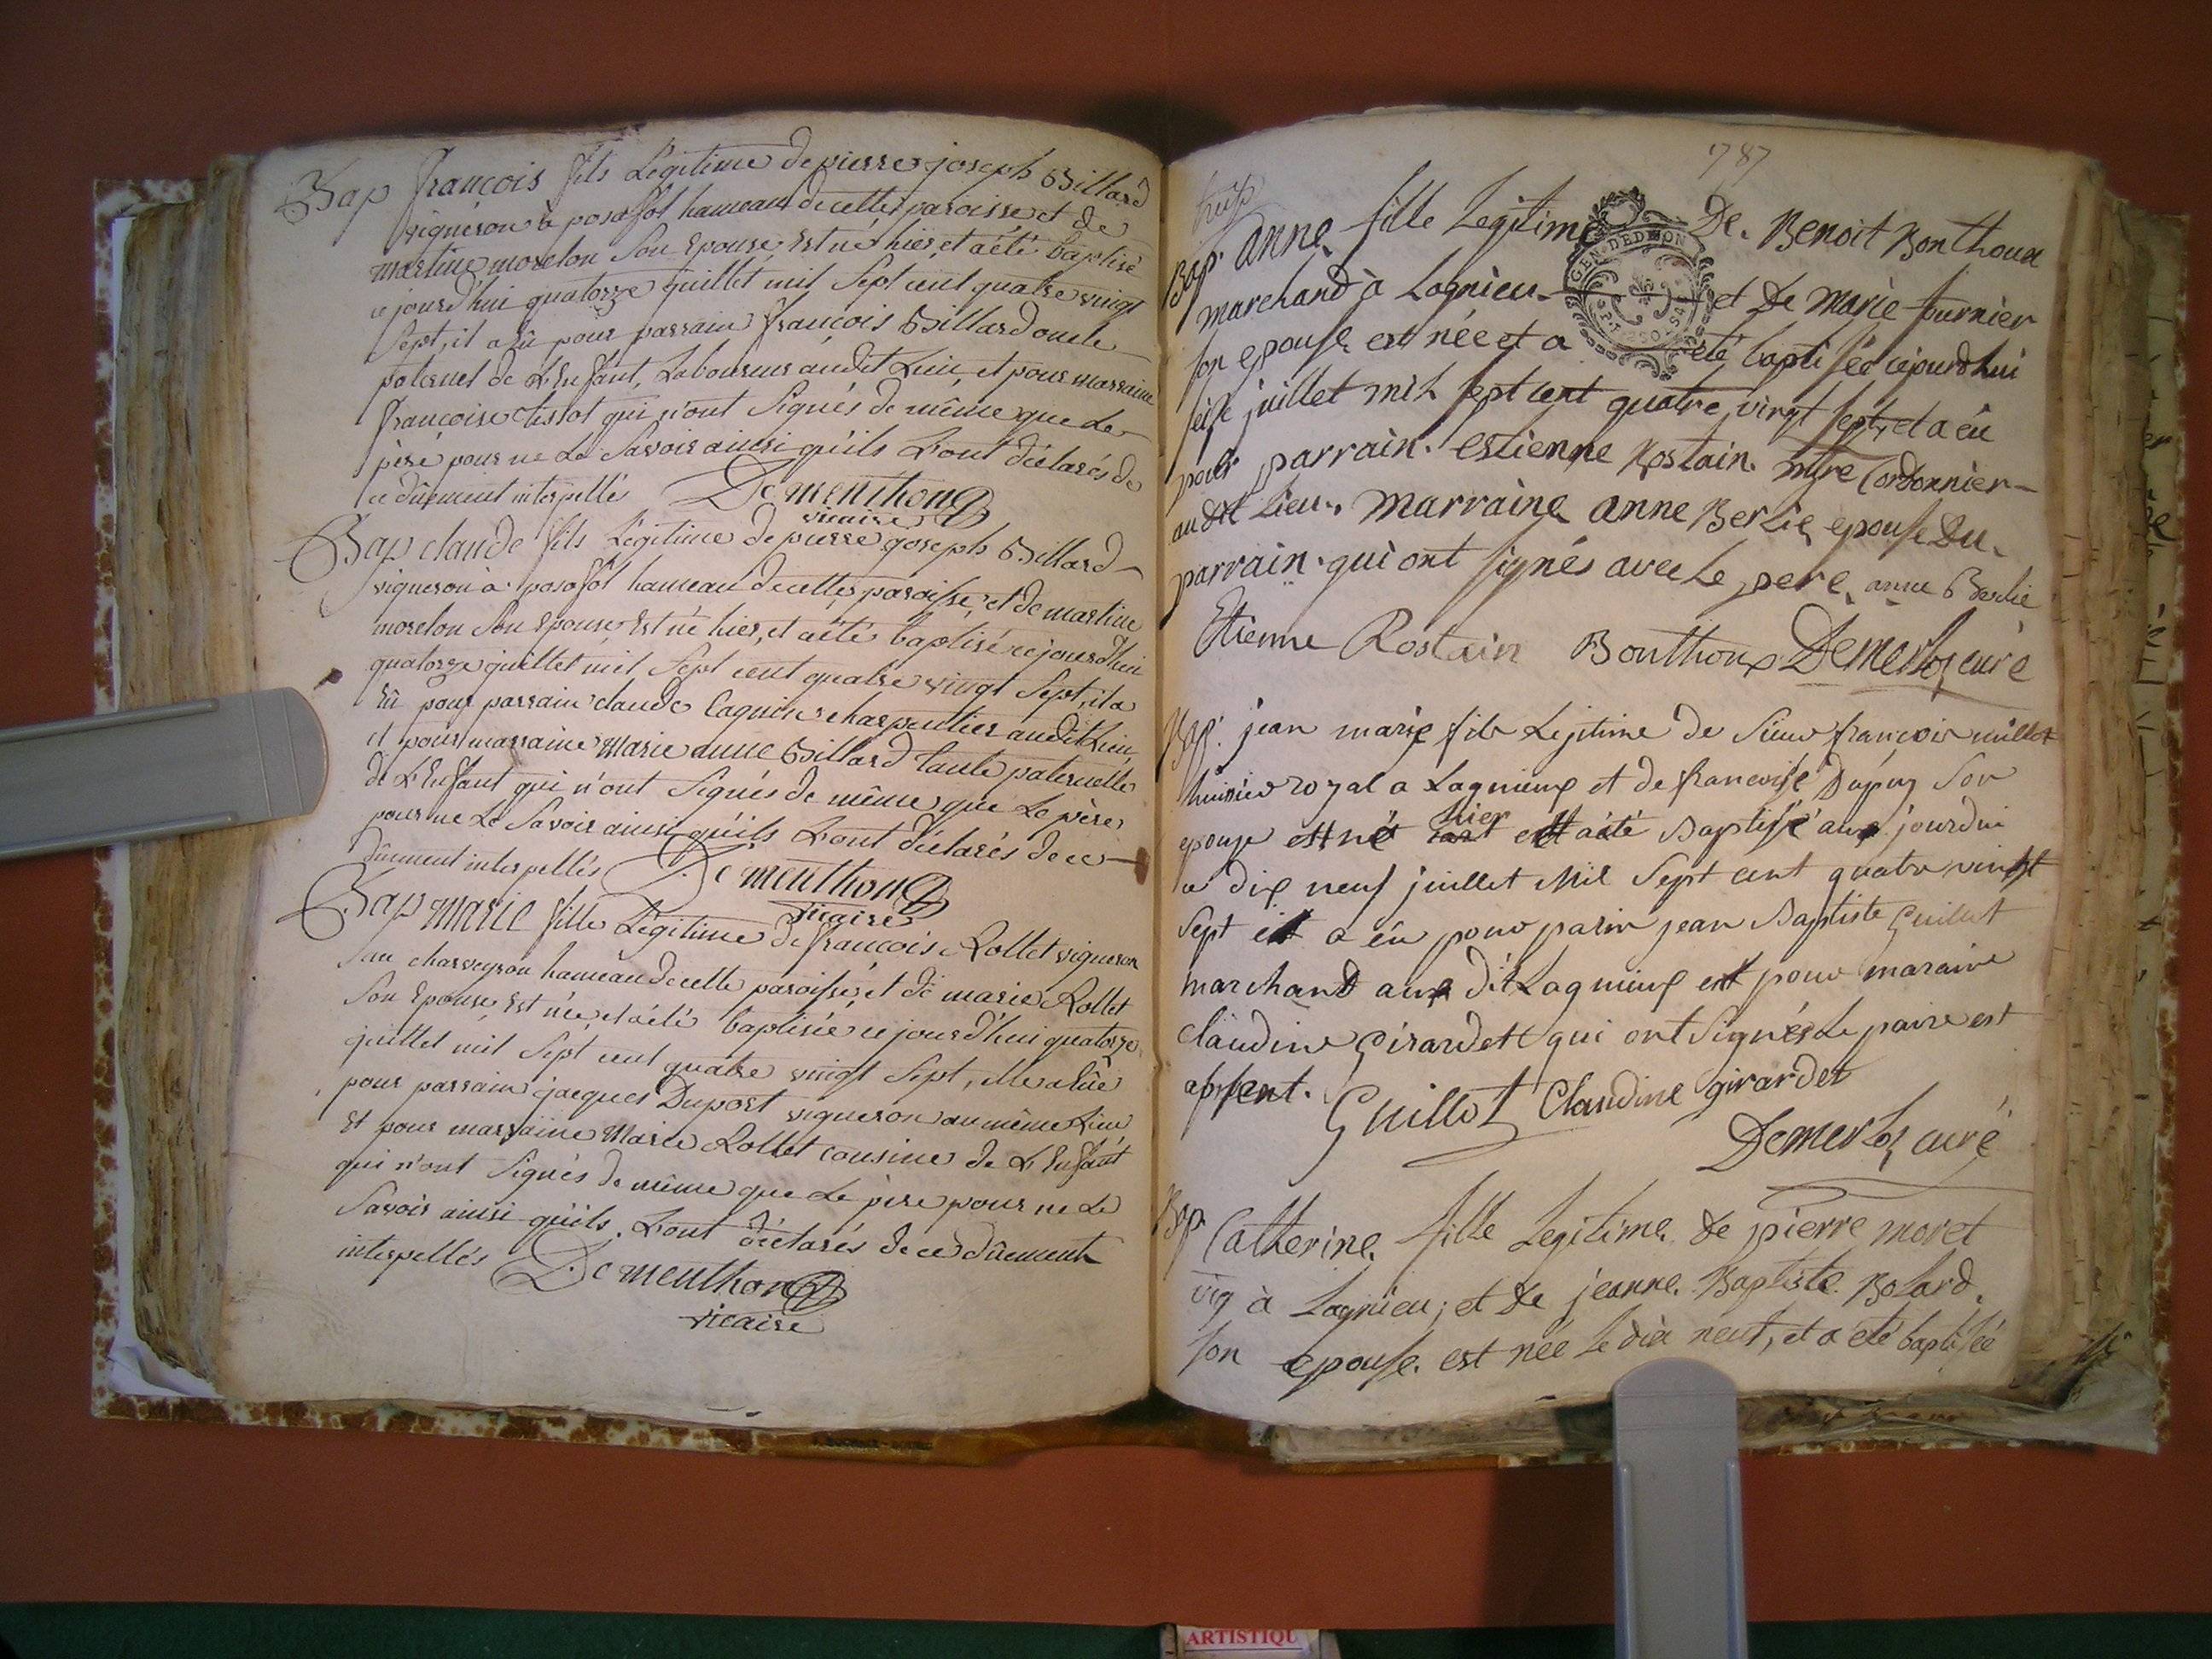 Bap françois fils Légitime de pierre joseph Billard
vigneron à posafol hameau de cette paroisse et de
martine morelon son Epouse, Est né hier, et aété baptisé
ce jourd'hui quatorze juillet mil Sept cent quatre vingt
Sept, il a eû pour parrain françois Billard oncle
paternel de L'Enfant, Laboureur audit Lieu, et pour marraine
françoise tissot qui n'ont Signés de même que Le
père pour ne Le Savoir ainsi qu'ils L'ont déclarés de
ce dûement interpellé Dementhon
vicaire
Bap claude fils Légitime de pierre joseph Billard
vigneron à posafol hameau de cette paroisse, et de martine
morelon Son Epouse, Est né hier, et aété baptisé ce jourd'hui
quatorze juillet mil Sept cent quatre vingt Sept, il a
Eû pour parrain claude Cagnin charpentier audit Lieu,
et pour marraine Marie anne Billard tante paternelle
de L'Enfant qui n'ont Signés de même que Le père
pour ne Le Savoir ainsi qu'ils L'ont déclarés de ce
dûement interpellés Dementhon
vicaire
Bap marie fille Légitime de françois Rollet vigneron
au charveyron hameau de cette paroisse, et de marie Rollet
Son Epouse, Est née, et aété baptisée ce jourd'hui quatorze
juillet mil Sept cent quatre vingt Sept, Elle a Eûe
pour parrain jacques Duport vigneron au même Lieu
Et pour marraine Marie Rollet cousine de L'Enfant
qui n'ont Signés de même que Le père pour ne Le
Savoir ainsi qu'ils L'ont déclarés de ce dûement
interpellés Dementhon
vicaire
787
Bap. anne fille Legitime De Benoit Bonthoux
marchand à Lagnieu et De Marie fournier
son epouse est née et a été baptisée cejourdhui
seise juillet mil sept cent quatre vingt sept, et a eû
pour parrain Estienne Rostain mtre Cordonnier
audit Lieu, Marraine anne Berlie epouse Du
parrain qui ont signés avec Le pere. anne Berlie
Etienne Rostain Bonthoux Demerloz curé
Bap. jean marie fils Lejitime de Sieur françois millet
huissier royal a Lagnieux et de francoise Dupuy Son
epouse est né hier est aété Baptisé aux jourdui
a dix neuf juillet Mil Sept cent quatre vingt
Sept est a eû pour parin jean Baptiste Guillot
marchand aux dit Lagnieux est pour maraine
Claudine Girardet qui ont Signés Le paire est
apsent. Guillot Claudine girardet
Demerloz curé
Bap. Catherine fille Legitime de pierre moret
vig à Lagnieu, et de jeanne Baptiste Bolard
son epouse est née Le dix neuf, et a été baptisée
GEN DE DIJON
ARTISTIQU